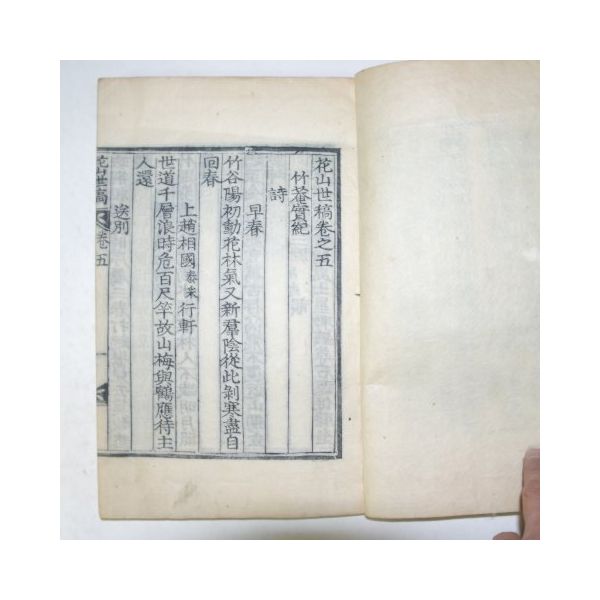 花山世稿卷之五
竹菴實紀
詩
早春
竹谷陽初動花林氣又新羣陰從此剝寒盡自
回春
上趙相國泰采行軒
世道千層浪時危百尺竿故山梅與鶴應待主
人還
送別
花山世稿 卷五